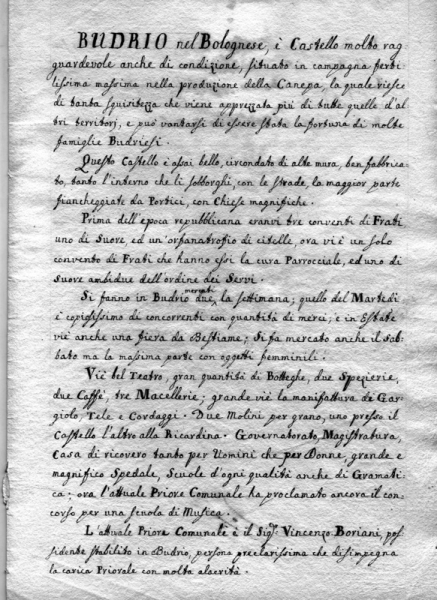 BUDRIO nel Bolognese, è Castello molto rag-
guardevole anche di condizione, situato in campagna ferti-
lissima massima nella produzione della Canepa, la quale riesce
di tanta squisitezza che viene apprezzata più di tutte quelle d'al-
tri territorj, e può vantarsi di essere stata la fortuna di molte
famiglie Budriesi.
Questo Castello è assai bello, circondato di alte mura, ben fabbrica-
to, tanto l'interno che li sobborghi, con le strade, la maggior parte
fiancheggiate da Portici, con Chiese magnifiche.
Prima dell'epoca repubblicana eranvi tre conventi di Frati
uno di Suore, ed un'orfanatrofio di citelle, ora vi è un solo
convento di Frati che hanno essi la cura Parrocciale, ed uno di
suore ambidue dell'ordine dei Servi.
mercati
Si fanno in Budrio due la settimana; quello del Martedì
è copiosissimo di concorrenti con quantità di merci, e in Estate
vi è anche una fiera da Bestiame; Si fa mercato anche il sab-
bato ma la massima parte con oggetti femminili.
Vi è bel Teatro, gran quantità di Botteghe, due Spezierie,
due Caffè, tre Macellerie; grande vi è la manifattura de Gar-
giolo, Tele e Cordaggi. Due Molini per grano, uno presso il
Castello l'altro alla Ricardina. Governatorato, Magistratura,
Casa di ricovero tanto per Uomini che per Donne, grande e
magnifico Spedale, Scuole d'ogni qualità anche di Gramati-
ca; ora l'attuale Priore Comunale ha proclamato ancora il con-
corso per una scuola di Musica.
L'attuale Priore Comunale è il Sig.r Vincenzo Boriani, pos-
sidente stabilito in Budrio, persona preclarissima che disimpegna
la carica Priorale con molta alacrità.